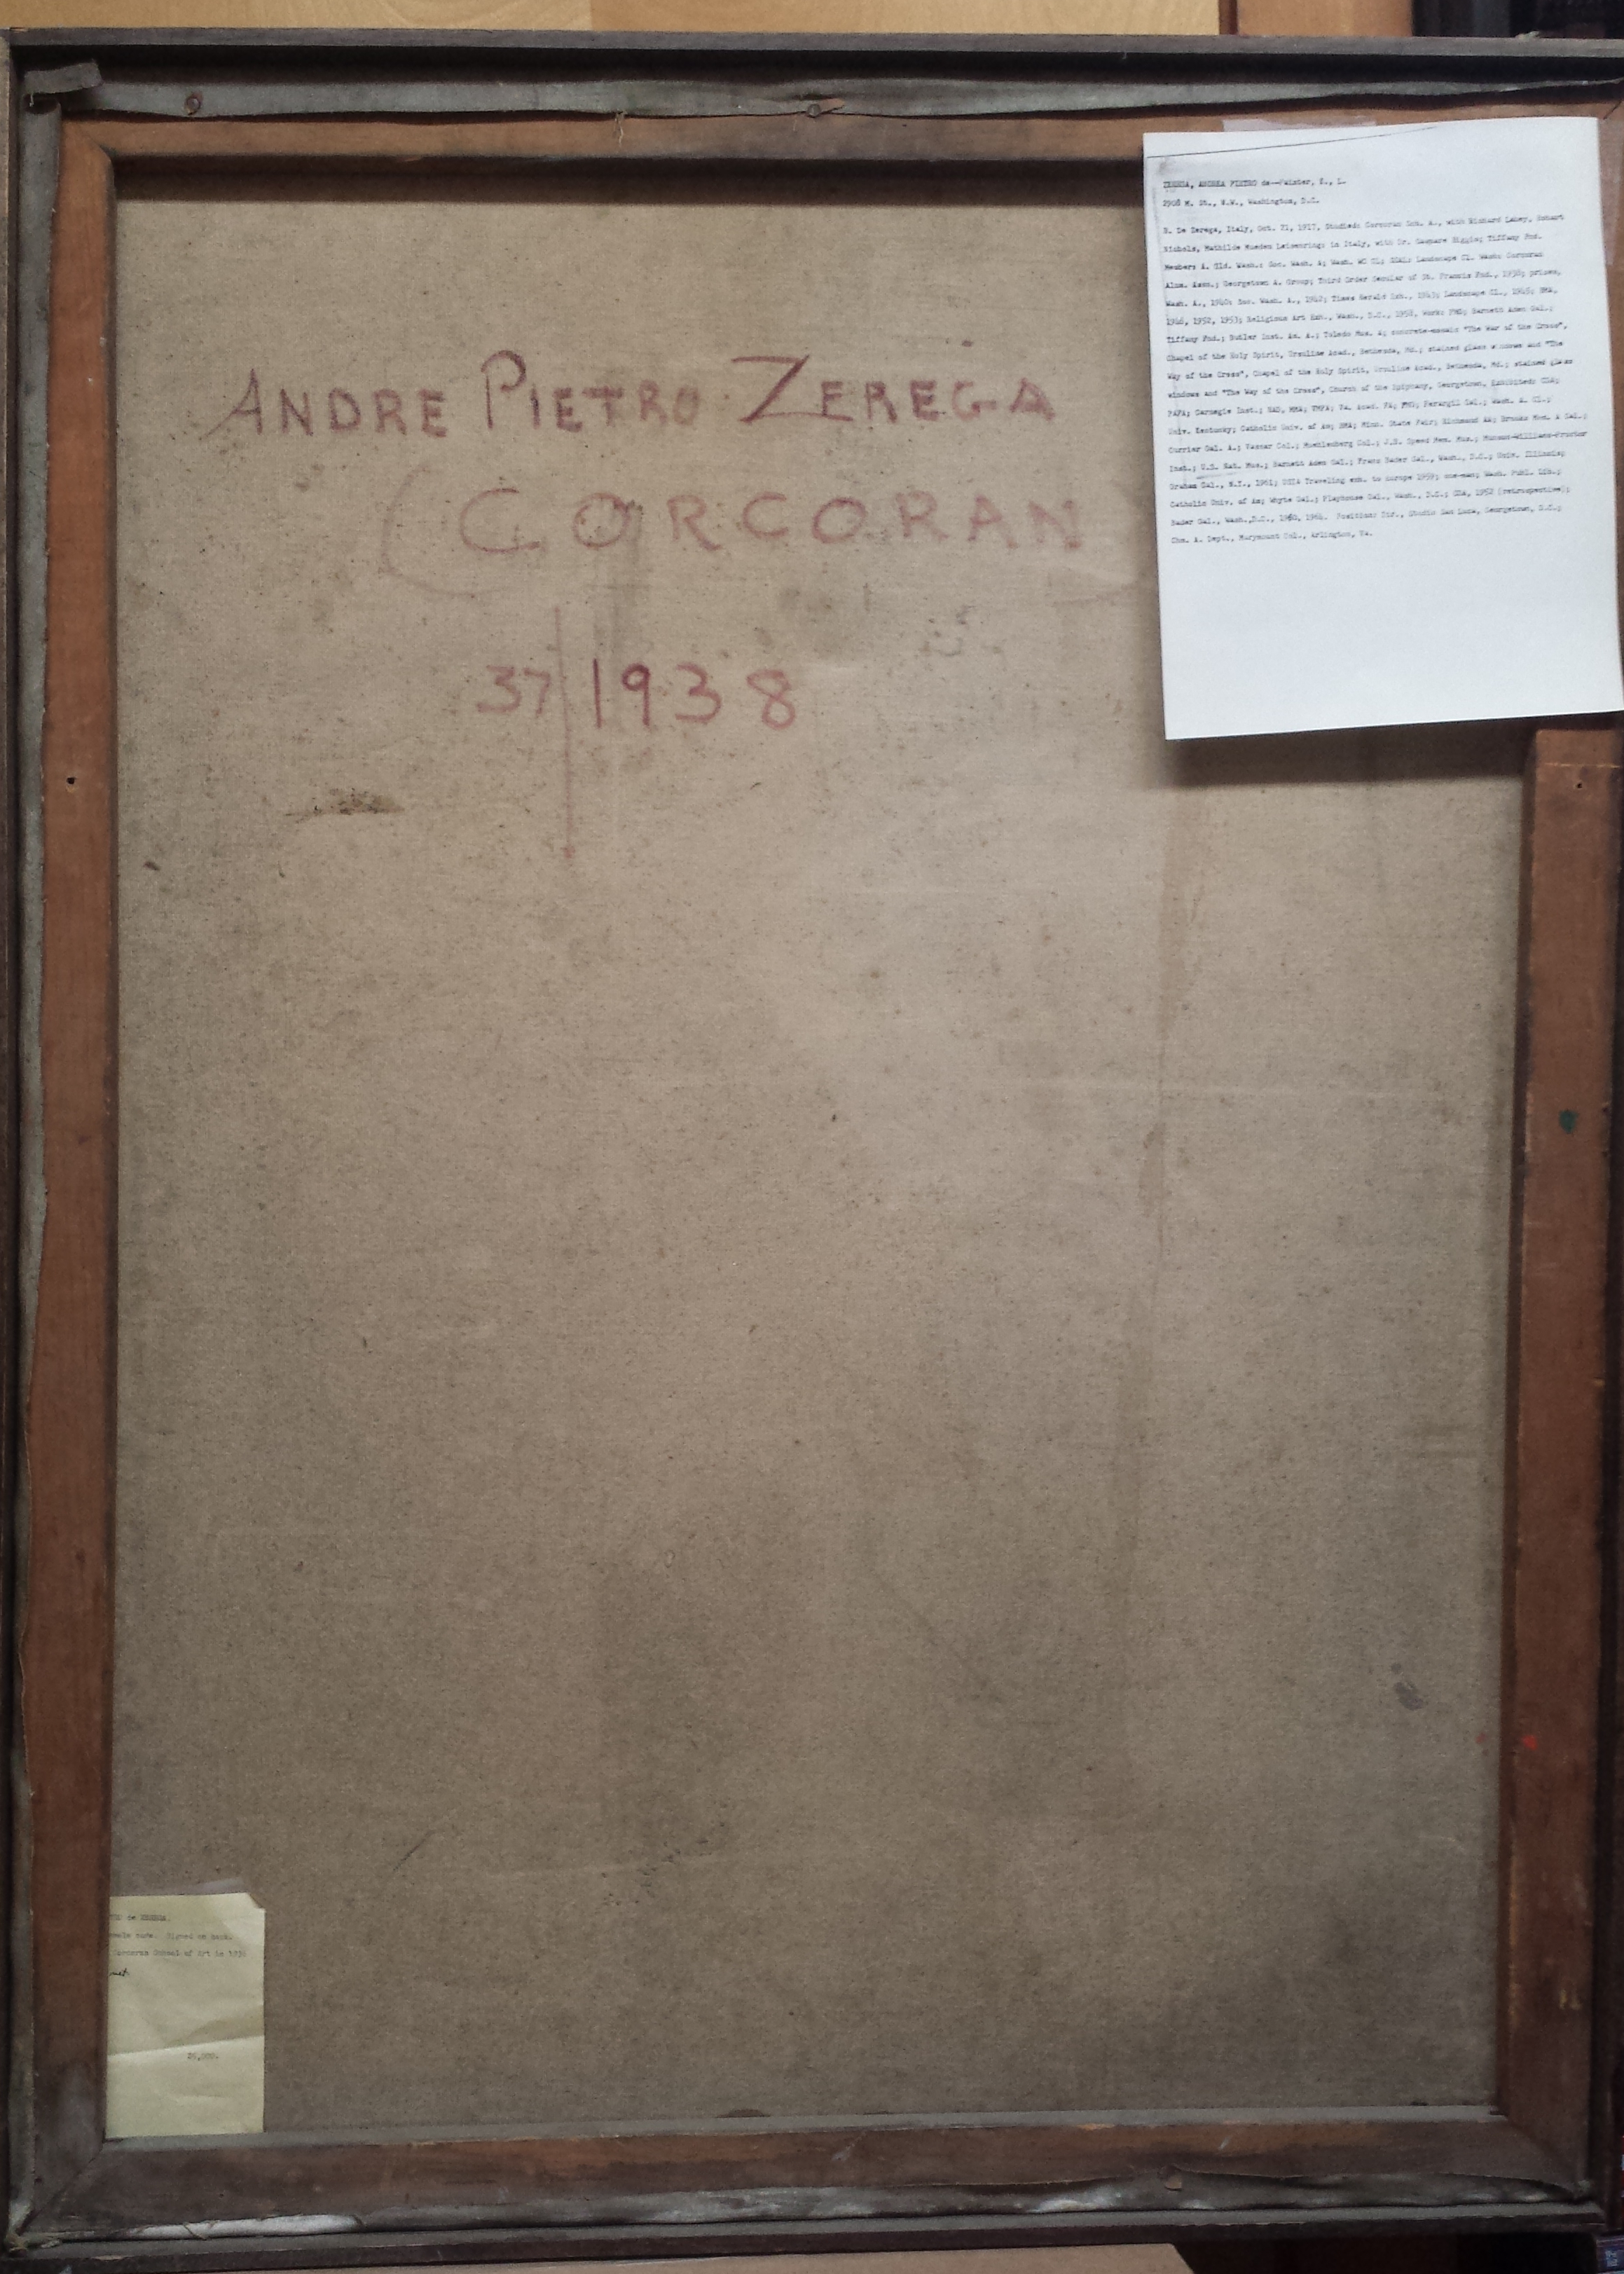 ANDRE PIETRO ZEREGA
(CORCORAN)
37 | 1938
ZEREGA, ANDREA PIETRO de--Painter, E., L.
2908 M. St., N.W., Washington, D.C.
B. De Zerega, Italy, Oct. 21, 1917, Studied: Corcoran Sch. A., with Richard Lahey, Hobart
Nichols, Mathilde Mueden Leisenring; in Italy, with Dr. Gaspare Biggio; Tiffany Fnd.
Member: A. Gld. Wash.; Soc. Wash. A; Wash. WC Cl; Landscape Cl. Wash; Corcoran
Alum. Assn.; Georgetown A. Group; Third Order Secular of St. Francis Fnd., 1938; prizes,
Wash. A., 1940; Soc. Wash. A., 1942; Times Herald Exh., 1943; Landscape Cl., 1945; BMA,
1946, 1952, 1953; Religious Art Exh., Wash., D.C., 1958, Work: PMG; Barnett Aden Gal.;
Tiffany Fnd.; Butler Inst. Am. A.; Toledo Mus. A; concrete-mosaic "The Way of the Cross",
Chapel of the Holy Spirit, Ursuline Acad., Bethesda, Md.; stained glass windows and "The
Way of the Cross", Chapel of the Holy Spirit, Ursuline Acad., Bethesda, Md.; stained glass
windows and "The Way of the Cross", Church of the Epiphany, Georgetown, Exhibited: CGA;
PAFA; Carnegie Inst.; NAD, BMA; VMFA; Va. Acad. FA; PMG; Ferargil Gal.; Wash. A. Cl.;
Univ. Kentucky; Catholic Univ. of Am; BMA; Minn. State Fair; Richmond AA; Brooks Mem. A Gal.;
Currier Gal. A.; Vassar Col.; Muehlenberg Col.; J.B. Speed Mem. Mus.; Munson-Williams-Proctor
Inst.; U.S. Nat. Mus.; Barnett Aden Gal.; Franz Bader Gal., Wash., D.C.; Univ. Illinois;
Graham Gal., N.Y., 1961; USIA Traveling exh. to europe 1959; one-man; Wash. Publ. Lib.;
Catholic Univ. of Am; Whyte Gal.; Playhouse Gal., Wash., D.C.; CGA, 1952 (retrospective);
Bader Gal., Wash.,D.C., 1960, 1964. Position: Dir., Studio San Luca, Georgetown, D.C.;
Chm. A. Dept., Marymount Col., Arlington, Va.
de ZEREGA.
nude. Signed on back.
Corcoran School of Art in 193